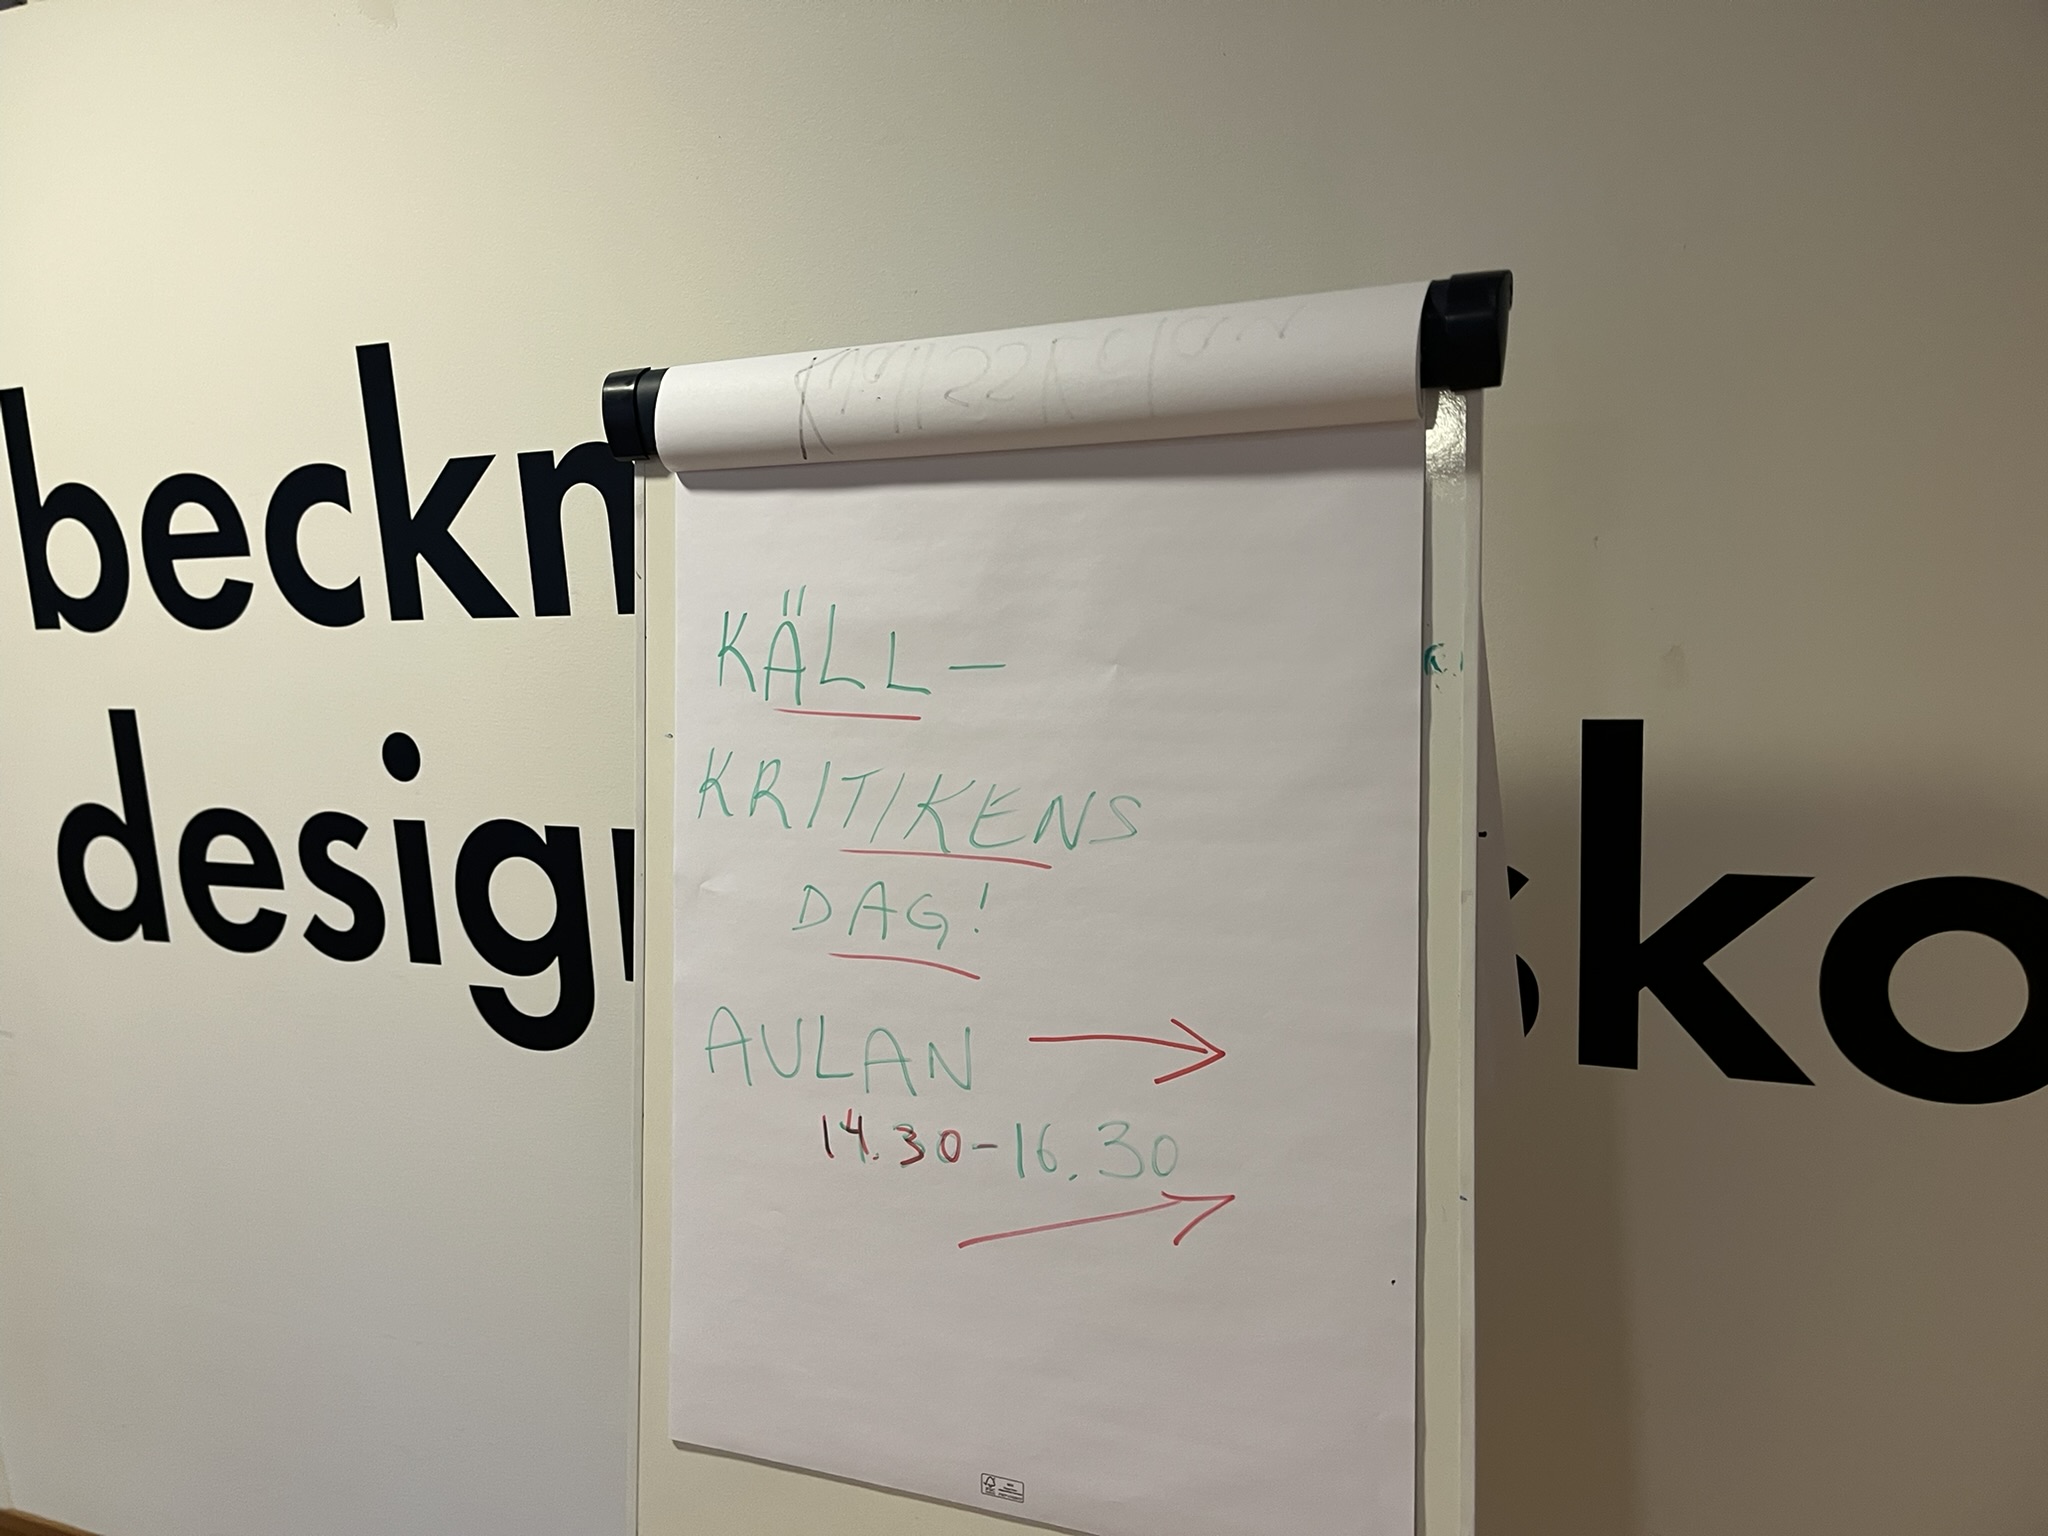 beckm
design
sko
KÄLL-
KRITIKENS
DAG!
AULAN →
14.30-16.30